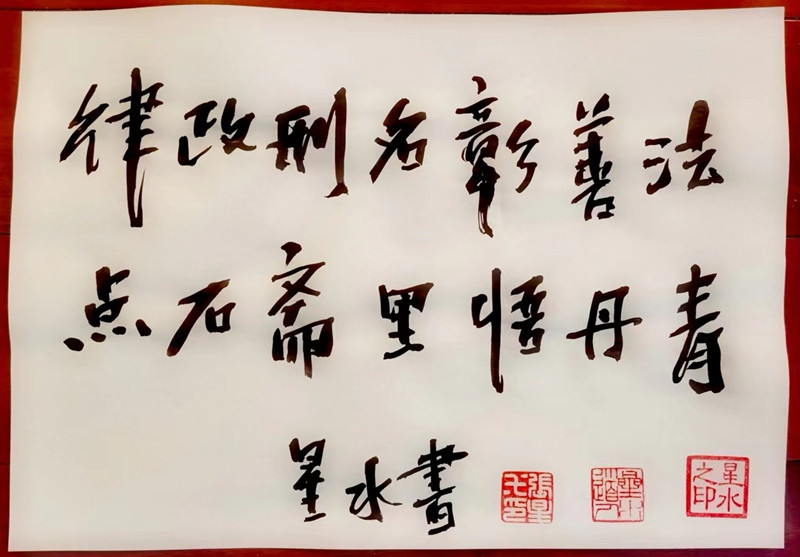 律政刑名彰善法
点石斋里悟丹青
星水書
星水之印